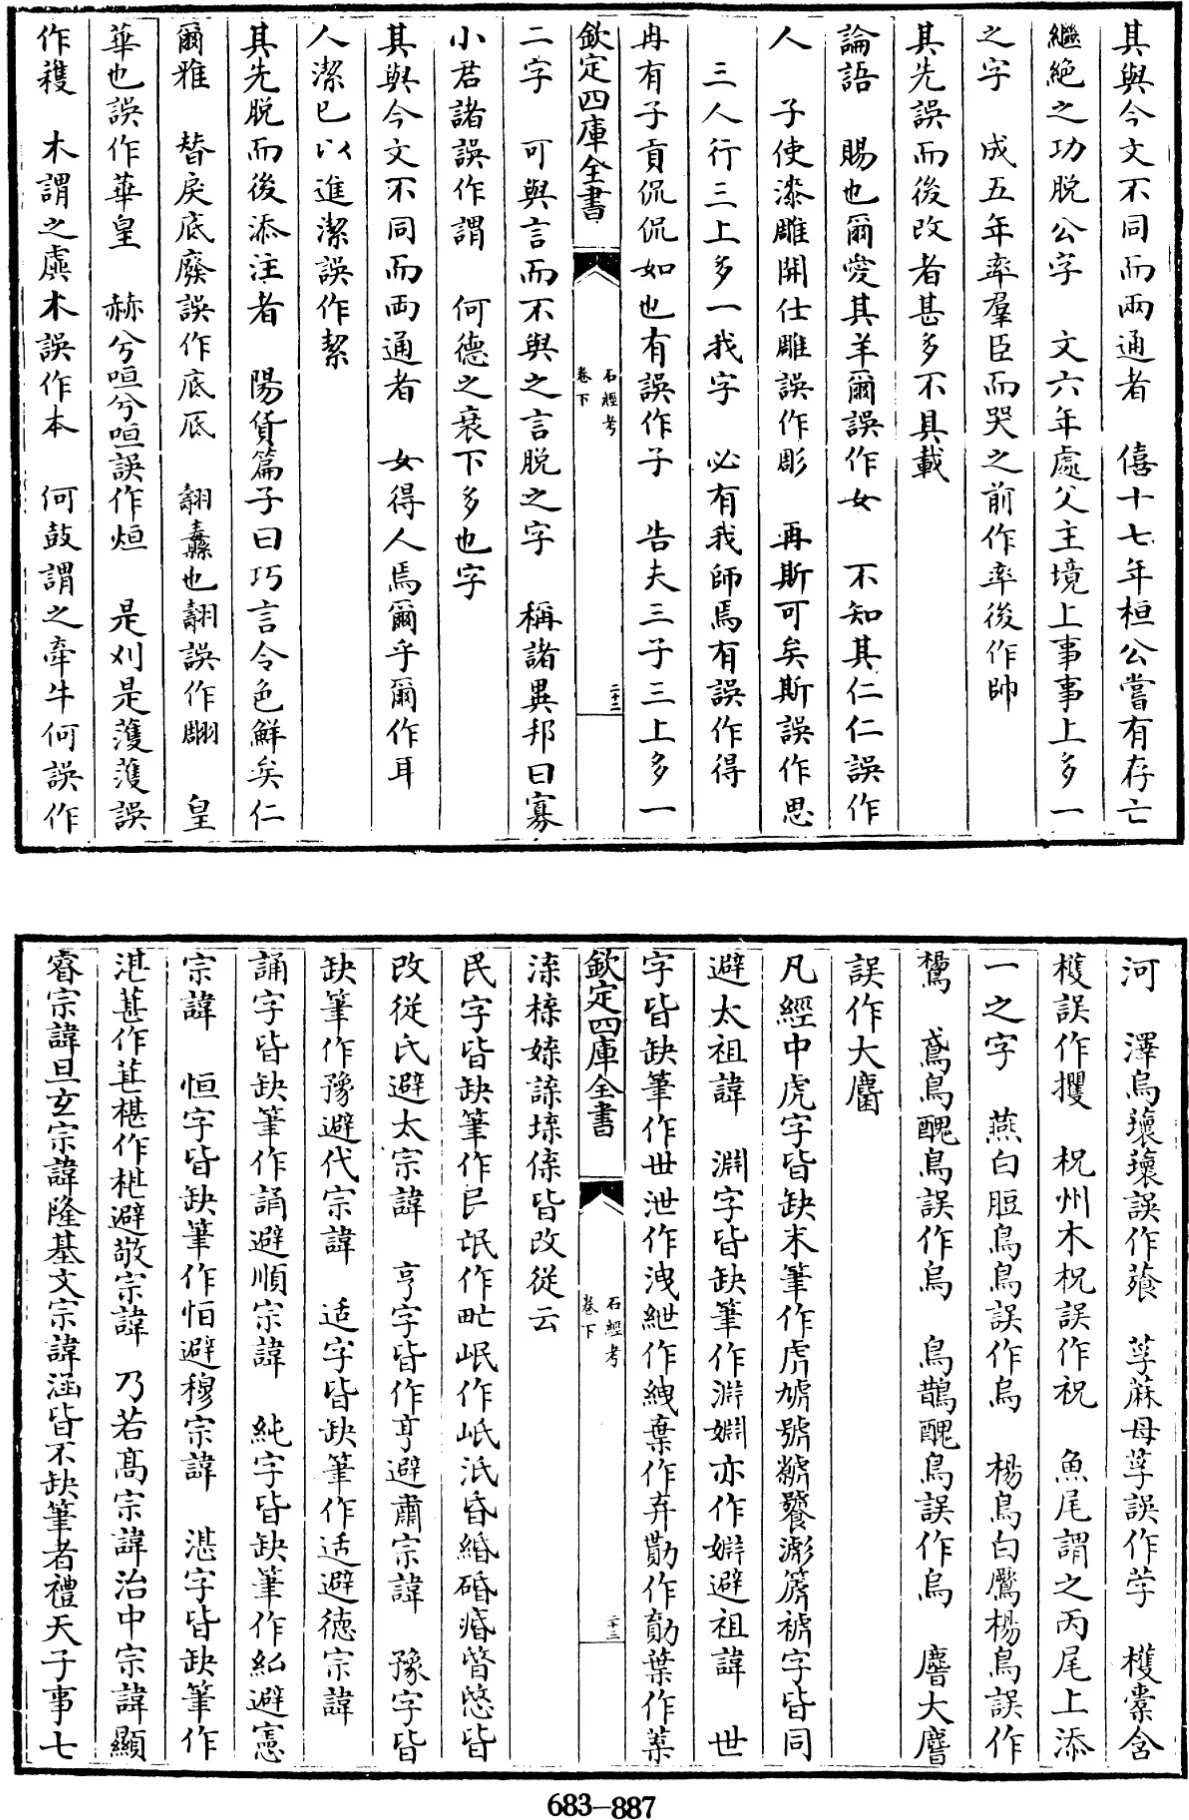 其與今文不同而兩通者　僖十七年桓公嘗有存亡
繼絶之功脱公字　文六年處父主境上事事上多一
之字　成五年率羣臣而哭之前作率後作帥
其先誤而後改者甚多不具載
論語　賜也爾愛其羊爾誤作女　不知其仁仁誤作
人　子使漆雕開仕雕誤作彫　再斯可矣斯誤作思
三人行三上多一我字　必有我師焉有誤作得
冉有子貢侃侃如也有誤作子　告夫三子三上多一
欽定四庫全書
石經考
卷下
二十二
二字　可與言而不與之言脱之字　稱諸異邦曰寡
小君諸誤作謂　何德之衰下多也字
其與今文不同而両通者　女得人焉爾乎爾作耳
人潔已以進潔誤作絜
其先脱而後添注者　陽貨篇子曰巧言令色鮮矣仁
爾雅　替戾底廢誤作底厎　翿纛也翿誤作翢　皇
華也誤作華皇　赫兮咺兮咺誤作烜　是刈是濩濩誤
作穫　木謂之虡木誤作本　何鼓謂之牽牛何誤作
河　澤烏瓌瓌誤作薞　荸麻母荸誤作芓　檴橐含
檴誤作擭　柷州木柷誤作祝　魚尾謂之丙尾上添
一之字　燕白脰烏烏誤作鳥　楊鳥白鷢楊鳥誤作
鸉　鳶烏醜烏誤作鳥　烏鵲醜烏誤作鳥　麐大麐
誤作大麕
凡經中虎字皆缺末筆作虎號虩饕滮篪褫字皆同
避太祖諱　淵字皆缺筆作渊婣亦作婣避祖諱　世
字皆缺筆作丗泄作洩紲作絏棄作弃勩作勚葉作䒳
欽定四庫全書
石經考
卷下
二十三
渫𣓉媟諜堞偞皆改從云
民字皆缺筆作𫞕氓作甿岷作㟭泯昏緡碈痻瞀愍皆
改從氏避太宗諱　亨字皆作亨避肅宗諱　豫字皆
缺筆作豫避代宗諱　适字皆缺筆作适避德宗諱
誦字皆缺筆作誦避順宗諱　純字皆缺筆作紃避憲
宗諱　恒字皆缺筆作恒避穆宗諱　湛字皆缺筆作
湛葚作葚椹作椹避敬宗諱　乃若髙宗諱治中宗諱顯
睿宗諱旦玄宗諱隆基文宗諱涵皆不缺筆者禮天子事七
683—887